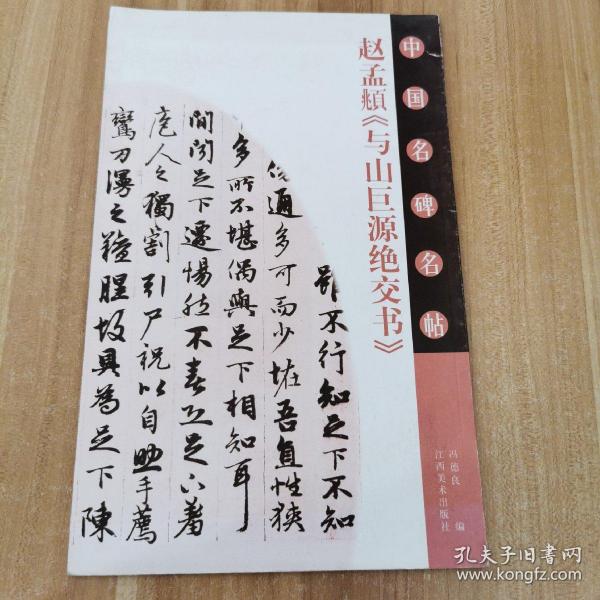 中国名碑名帖
赵孟頫《与山巨源绝交书》
冯德良 编
江西美术出版社
雖不行知足下不知
傍通多可而少怪吾直性狹
多所不堪偶與足下相知耳
間聞足下遷惕然不喜恐足下羞
庖人之獨割引尸祝以自助手薦
鸞刀漫之羶腥故具為足下陳
孔夫子旧书网
www.kongfz.com